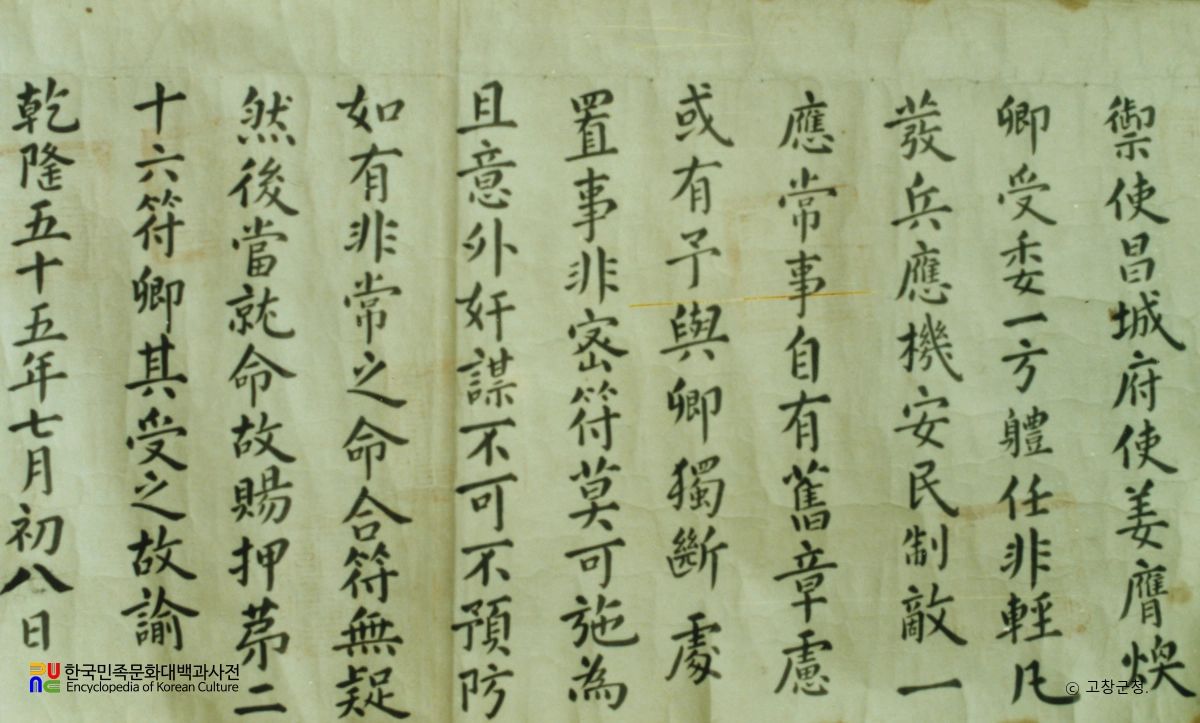 禦使昌城府使姜膺煥
卿受委一方體任非輕凡
發兵應機安民制敵一
應常事自有舊章慮
或有予與卿獨斷處
置事非密符莫可施為
且意外奸謀不可不預防
如有非常之命合符無疑
然後當就命故賜押苐二
十六符卿其受之故諭
乾隆五十五年七月初八日
한국민족문화대백과사전
Encyclopedia of Korean Culture
© 고창군청.